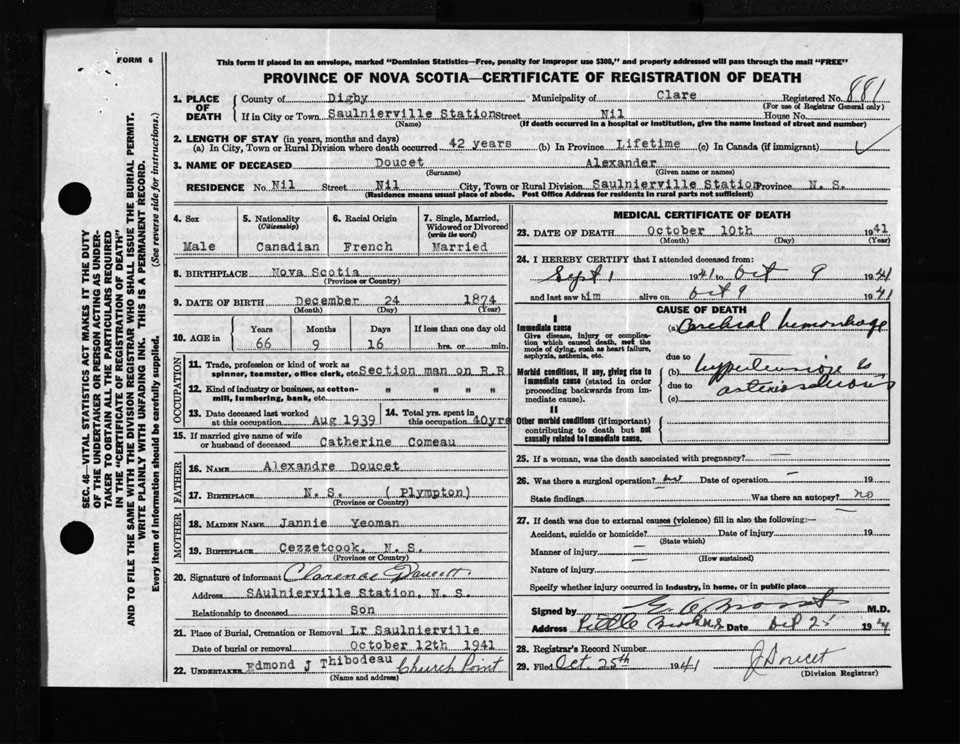 FORM 6
This form if placed in an envelope, marked "Dominion Statistics—Free, penalty for improper use $300," and properly addressed will pass through the mail "FREE"
PROVINCE OF NOVA SCOTIA—CERTIFICATE OF REGISTRATION OF DEATH
SEC. 46—VITAL STATISTICS ACT MAKES IT THE DUTY
OF THE UNDERTAKER OR PERSON ACTING AS UNDER-
TAKER TO OBTAIN ALL THE PARTICULARS REQUIRED
IN THE "CERTIFICATE OF REGISTRATION OF DEATH"
AND TO FILE THE SAME WITH THE DIVISION REGISTRAR WHO SHALL ISSUE THE BURIAL PERMIT.
WRITE PLAINLY WITH UNFADING INK. THIS IS A PERMANENT RECORD.
Every item of information should be carefully supplied. (See reverse side for instructions.)
1. PLACE OF DEATH County of Digby Municipality of Clare Registered No. 881
(For use of Registrar General only)
If in City or Town Saulnierville Station Street Nil House No.
(Name) (If death occurred in a hospital or institution, give the name instead of street and number)
2. LENGTH OF STAY (in years, months and days)
(a) In City, Town or Rural Division where death occurred 42 years (b) In Province Lifetime (c) In Canada (if immigrant)
3. NAME OF DECEASED Doucet Alexander
(Surname) (Given name or names)
RESIDENCE No. Nil Street Nil City, Town or Rural Division Saulnierville Station Province N. S.
(Residence means usual place of abode. Post Office Address for residents in rural parts not sufficient)
4. Sex 5. Nationality (Citizenship) 6. Racial Origin 7. Single, Married, Widowed or Divorced (write the word)
Male Canadian French Married
8. BIRTHPLACE Nova Scotia
(Province or Country)
9. DATE OF BIRTH December 24 1874
(Month) (Day) (Year)
10. AGE in Years Months Days If less than one day old
66 9 16 hrs. or min.
OCCUPATION
11. Trade, profession or kind of work as
spinner, teamster, office clerk, etc. Section man on R.R.
12. Kind of industry or business, as cotton-
mill, lumbering, bank, etc. " " " "
13. Date deceased last worked at this occupation Aug 1939 14. Total yrs. spent in this occupation 40yrs
15. If married give name of wife
or husband of deceased Catherine Comeau
FATHER
16. NAME Alexandre Doucet
17. BIRTHPLACE N. S. (Plympton)
(Province or Country)
MOTHER
18. MAIDEN NAME Jannie Yeoman
19. BIRTHPLACE Cezzetcook, N. S.
(Province or Country)
20. Signature of informant Clarence Doucett
Address SAulnierville Station, N. S.
Relationship to deceased Son
21. Place of Burial, Cremation or Removal Lr Saulnierville
Date of burial or removal October 12th 1941
22. UNDERTAKER Edmond J Thibodeau Church Point
(Name and address)
MEDICAL CERTIFICATE OF DEATH
23. DATE OF DEATH October 10th 1941
(Month) (Day) (Year)
24. I HEREBY CERTIFY that I attended deceased from:
Sept 1 1941 to Oct 9 1941
and last saw him alive on Oct 9 1941
CAUSE OF DEATH
I
Immediate cause
Give disease, injury or complica-
tion which caused death, not the
mode of dying, such as heart failure,
asphyxia, asthenia, etc.
(a) Cerebral hemorrhage
due to
Morbid conditions, if any, giving rise to
immediate cause (stated in order
proceeding backwards from im-
mediate cause).
(b) hypertension &
due to arteriosclerosis
(c)
II
Other morbid conditions (if important)
contributing to death but not
causally related to immediate cause.
25. If a woman, was the death associated with pregnancy? —
26. Was there a surgical operation? no Date of operation 19
State findings Was there an autopsy? no
27. If death was due to external causes (violence) fill in also the following:—
Accident, suicide or homicide? — Date of injury 19
(State which)
Manner of injury —
(How sustained)
Nature of injury —
Specify whether injury occurred in industry, in home, or in public place
Signed by M.D.
Address Date Oct 25 1941
28. Registrar's Record Number
29. Filed Oct. 25th 1941 J Doucet
(Division Registrar)